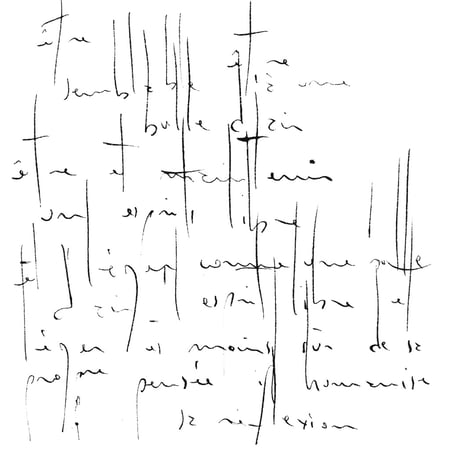 être être
semblable à une
bulle d'air
être et maintenir
un esprit libre
et léger comme une poule
d'air esprit libre et
léger et moins sûr de sa
propre pensée il humanise
la réflexion